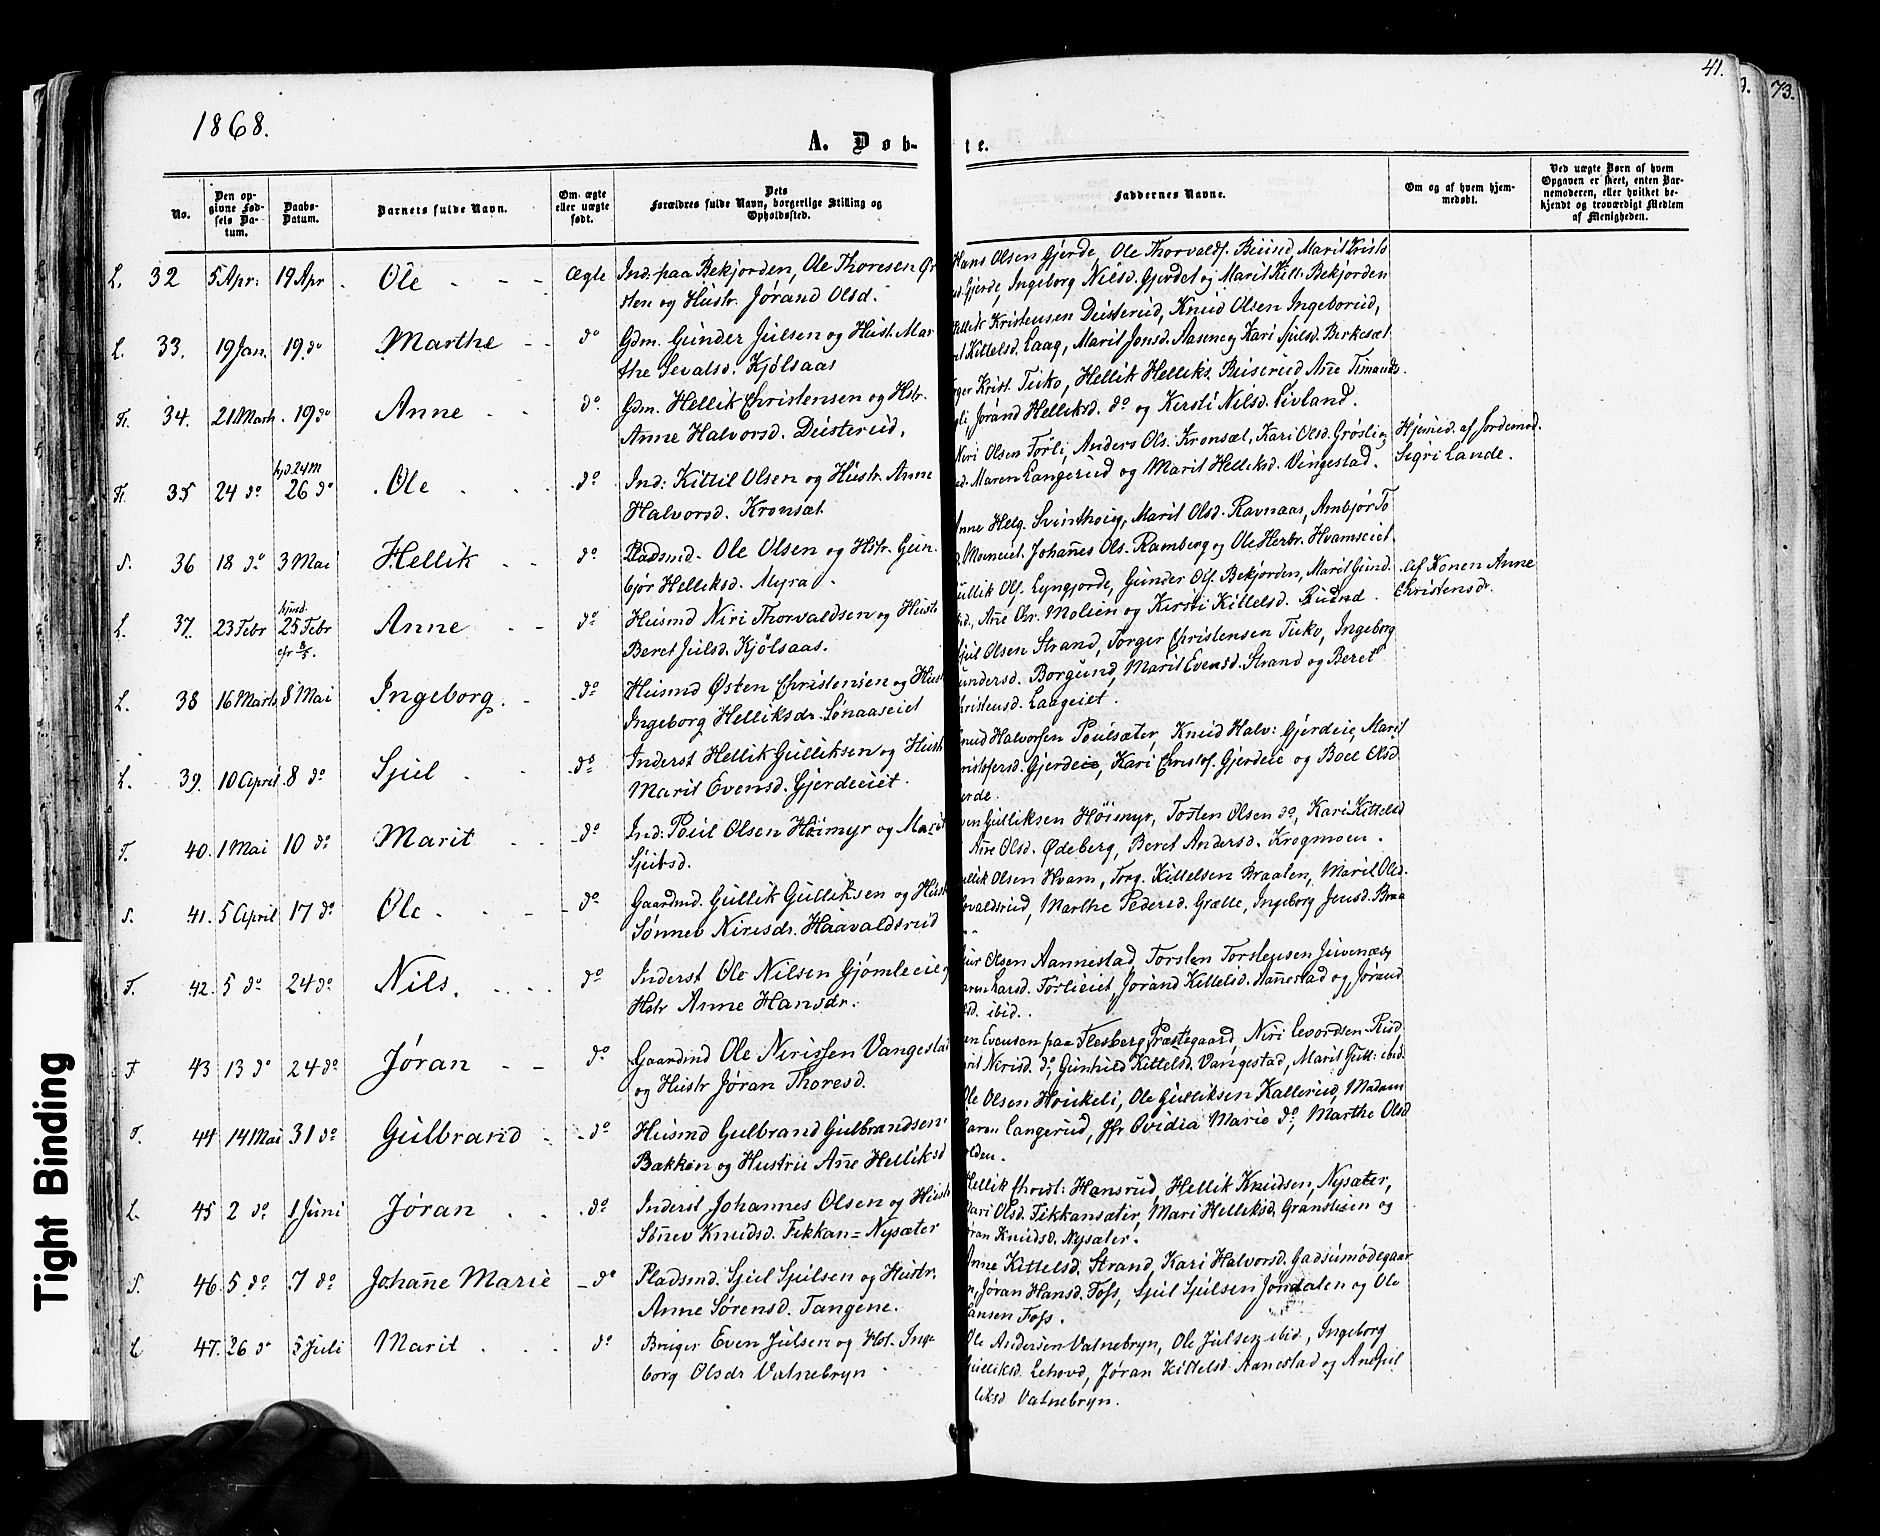 41.
73.
1868.
A. Døb-
te.
No.
Den opgivne Fødsels Datum.
Daabs-Datum.
Barnets fulde Navn.
Om ægte eller uægte født.
Dets Forældres fulde Navn, borgerlige Stilling og Opholdssted.
Faddernes Navne.
Om og af hvem hjemmedøbt.
Ved uægte Børn af hvem Opgaven er skeet, enten Barnemoderen, eller hvilket bekjendt og troværdigt Medlem af Menigheden.
L. 32 5 Apr: 19 Apr. Ole Ægte Ind. paa Bekjorden, Ole Thoresen Ør
sten og Hustr. Jørand Olsd.
Hans Olsen Gjerde, Ole Thorvalds. Marit Kristo
Gjerde, Ingeborg Nilsd. Gjerdet og Marit Kitt. Bekjorden
L. 33. 19 Jan. 19 do Marthe do Gdm. Gunder Juelsen og Hust. Mar
the Sevalsd. Kjølsaas
Kristensen Deisterud, Knud Olsen Ingeborud,
Kittelsd. Laag, Marit Jonsd. Aasene og Kari Sjulsd. Berkesæt
Fl. 34. 21 Marts. 19 do Anne do. Gdm. Hellik Christensen og Hstr.
Anne Halvorsd. Deisterud.
Krist. Teiko, Hellik Helliks. Ruiserud Anne
Jørand Helliksd. do og Kersti Nilsd. Livland.
Fl. 35 24 do hjd. 24 M 26 do Ole do Ind: Kittil Olsen og Hustr. Anne
Halvorsd. Kronsæt.
Niri Olsen Førli, Anders Ols. Kronsæt, Kari Olsd. Grøslie
Maren Langerud og Marit Helliksd. Vingestad.
Hjemd. af Jordemod.
Sigri Lande.
S. 36 18 do 3 Mai Hellik do Pladsmd. Ole Olsen og Hstr. Gun
bjør Helliksd. Myra.
Anne Helg. Marit Olsd. Ravnaas, Ambjør To
Johannes Ols. Ramberg og Ole Herbr. Hvamseiet
L. 37. 23 Febr hjmd. 25 Febr cfr 8/5. Anne do Husmd Niri Thorvaldsen og Hust.
Beret Juelsd. Kjølsaas.
Ols. Lyngjorde, Gunder Ols. Bekjorden, Marit Gund.
Anne Chr. Moleen og Kersti Kittelsd. Ruend.
af Konen Anne
Christensdr.
L. 38 16 Marts 8 Mai Ingeborg. do Husmd Østen Christensen og Hust
Ingeborg Helliksdr. Sønaaseiet
Olsen Strand, Torger Christensen Teiko, Ingeborg
Borgund, Marit Evensd. Strand og Beret
Laageiet.
L. 39. 10 April 8 do Sjul do Inderst Hellik Gulliksen og Hust
Marit Evensd. Gjerdeeiet.
Halvorsen Poulsæter, Knud Halv: Gjerdeie, Marit
Gjerdeie, Kari Christof. Gjerdeie og Boel Olsd
T. 40. 1 Mai 10 do Marit do Ind: Poul Olsen Høimyr og Marit
Sjulsd.
Gulliksen Høimyr, Tosten Olsen do, Kari Kittelsd
Anne Olsd. Ødeberg, Beret Andersd. Krogmoen.
S. 41. 5 April 17 do Ole. do Gaardmd. Gullik Gulliksen og Hust
Sønnev Nirisdr. Haavaldsrud
Olsen Hvam, Torg. Kittelsen Braalen, Marit Olsd.
Marthe Pedersd. Grælle, Ingeborg Jensd. Braa
T. 42. 5 do 24 do Nils. do Inderst Ole Nilsen Gjømleeie
Hstr Anne Hansdr.
Olsen Aannestad, Torsten Torstensen Juvenæs,
Larsd. Førlieiet, Jørand Kittelsd. Aannestad og Jørand
ibid.
T 43 13 do 24 do Jøran do Gaardmd Ole Nirissen Vangestad
og Hustr Jøran Thoresd.
Evensen paa Flesberg Præstegaard, Niri Levordsen Ruud
Nirisd. do, Gunhild Kittelsd. Vangestad, Marit Gull: ibid.
T. 44 14 Mai 31 do Gulbrand do Husmd Gulbrand Gulbrandsen
Bækken og Hustru Anne Helliksd
Ole Olsen Houkeli, Ole Gulliksen Kallerud, Madam
Langerud, Jfr Ovidia Marie do, Marthe Olsd
L. 45 2 do 1 Juni Jøran do Inderst Johannes Olsen og Hust
Sønev Knudsd. Fekkan= Nysæter
Hellik Christ: Hansrud, Hellik Knudsen, Nysæter,
Olsd. Fekkansæter, Mari Helliksd. Gransteien og
Knudsd. Nysæter.
S. 46. 5 do 7 do Johanne Marie do Pladsmd. Sjul Sjulsen og Hustr.
Anne Sørensd. Tangene.
Anne Kittelsd. Strand, Kari Halvorsd.
Jøran Hansd. Foss, Sjul Sjulsen Jondalen og Ole
Hansen Foss.
L 47. 26 do 5 Juli Marit do Bruger Even Juelsen og Hst. Inge
borg Olsdr Vatnebryn
Ole Andersen Vatnebryn, Ole Juelsen ibid, Ingeborg
Gulliksd. Lehovd, Jøran Kittelsd. Aanestad og
Vatnebryn.
Tight Binding